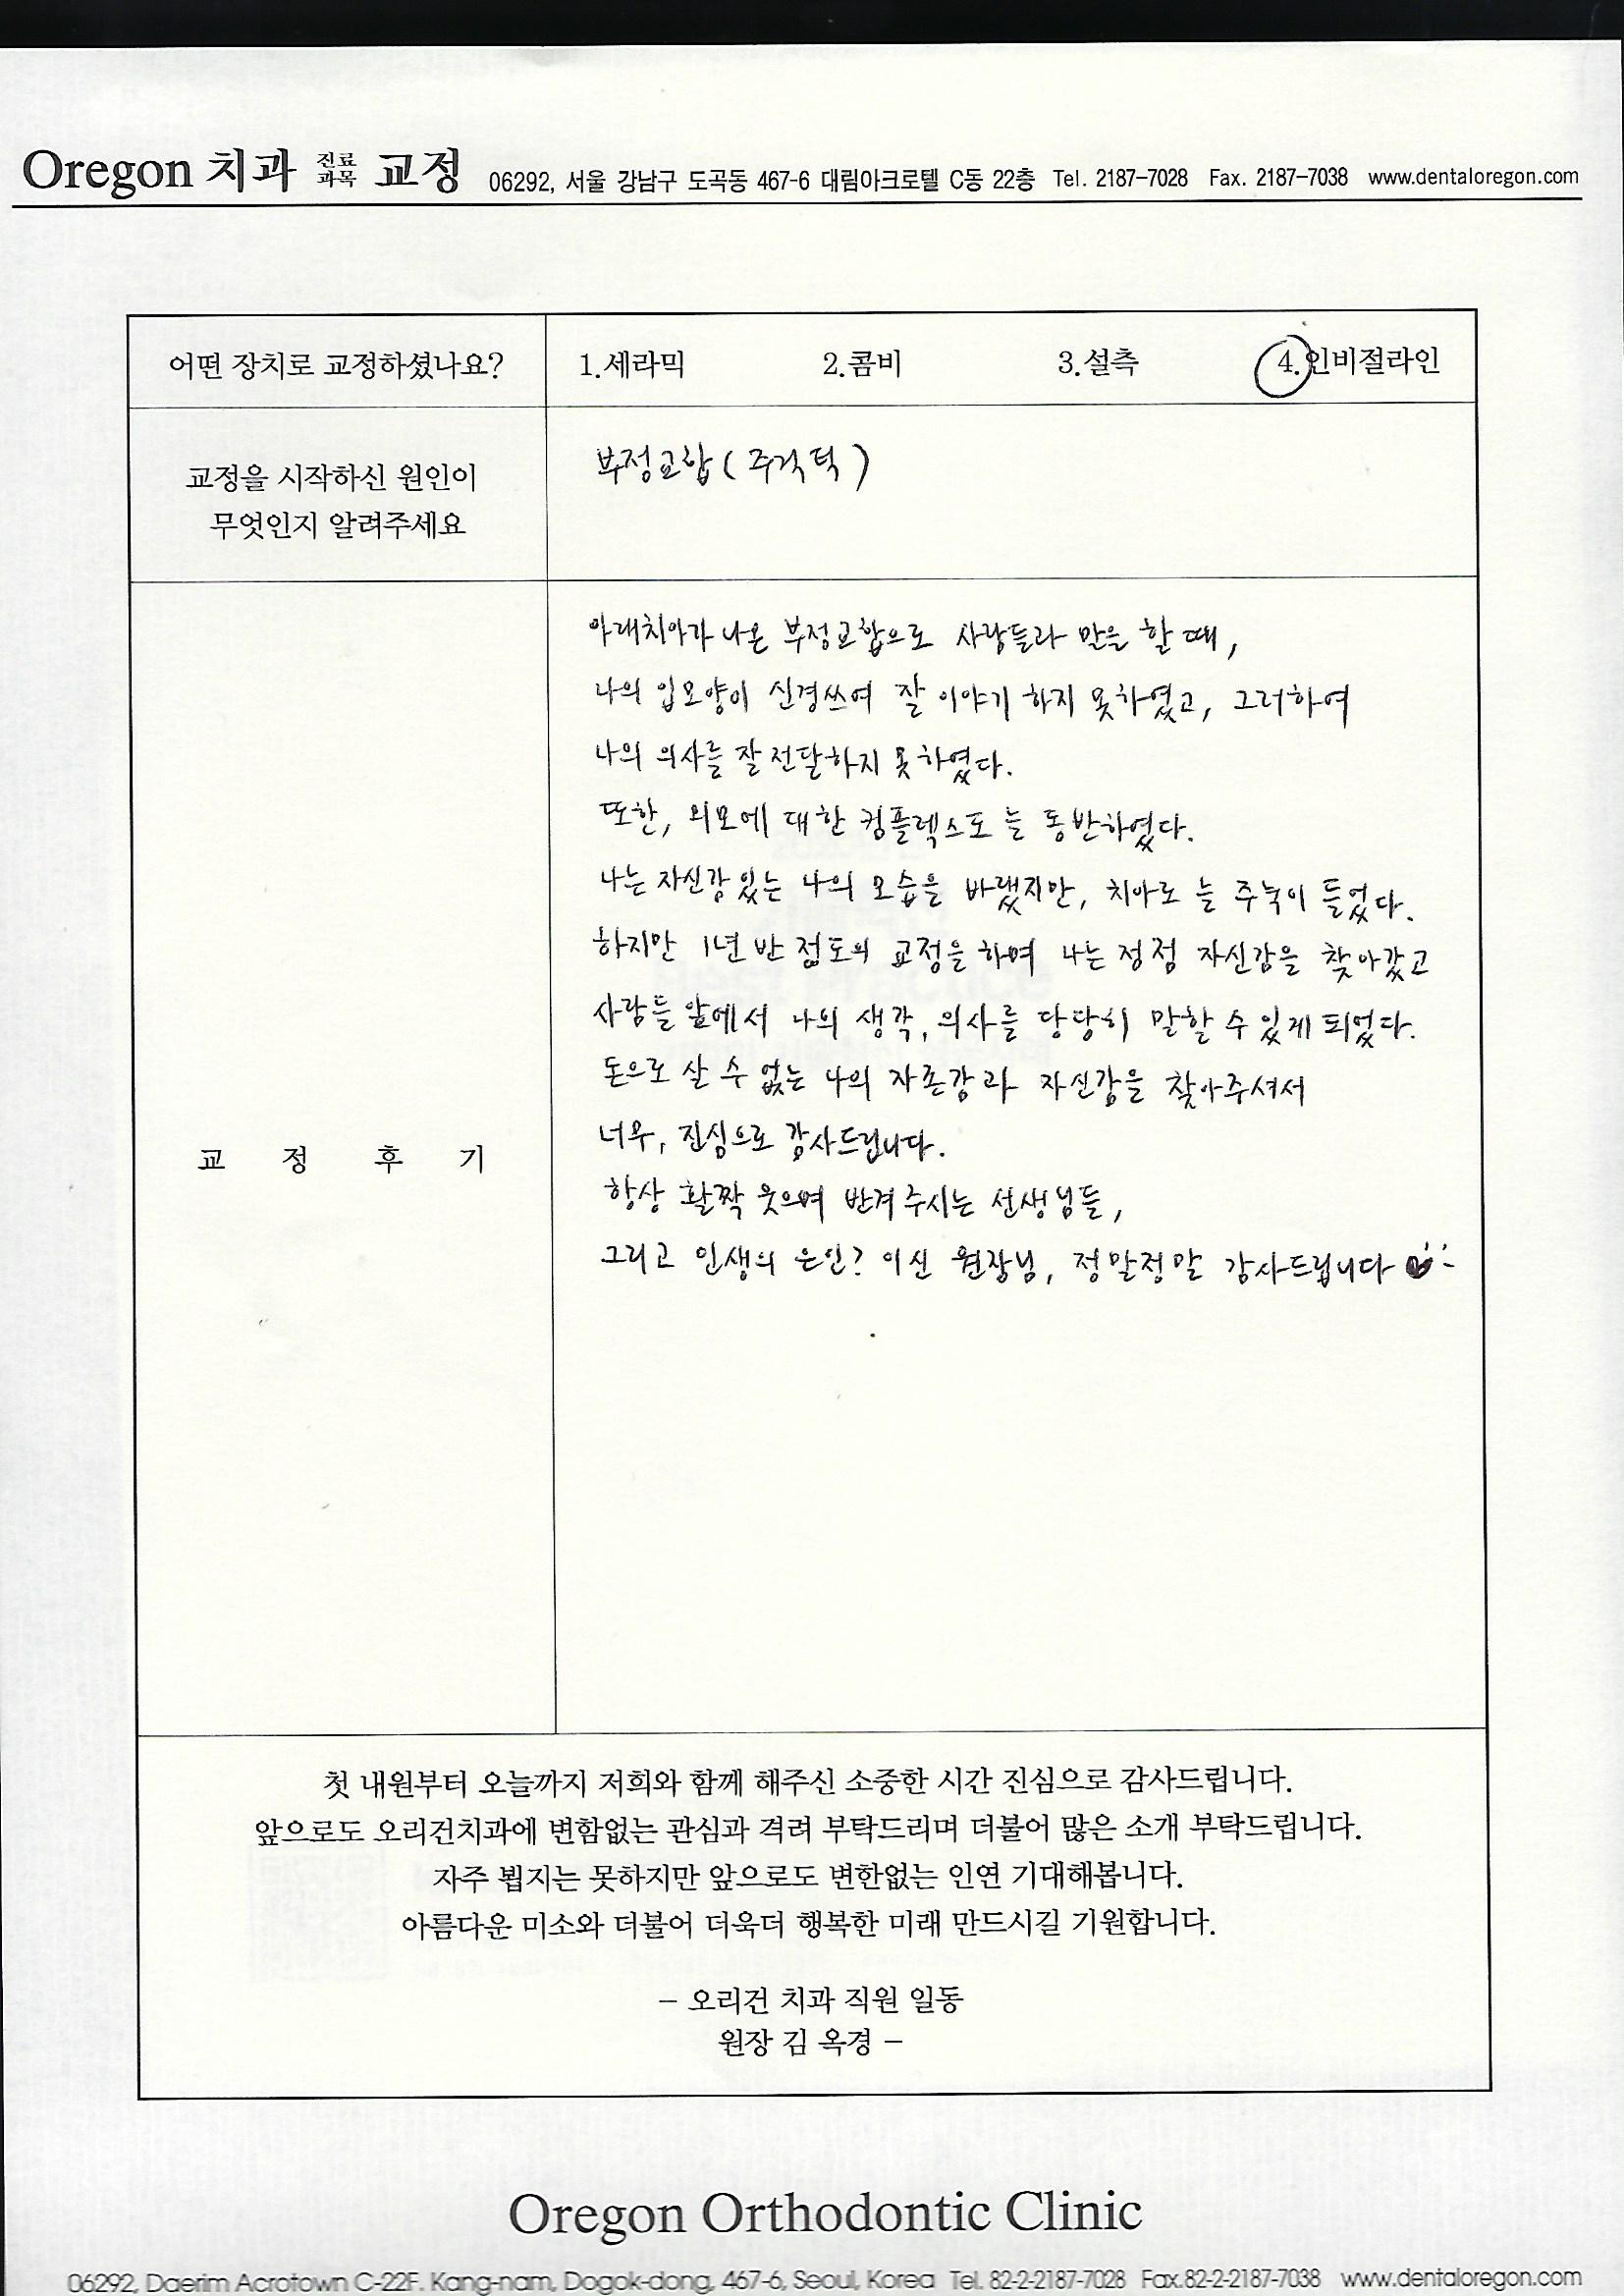 Oregon 치과 진료과목 교정 06292, 서울 강남구 도곡동 467-6 대림아크로텔 C동 22층 Tel. 2187-7028 Fax. 2187-7038 www.dentaloregon.com
어떤 장치로 교정하셨나요? 1.세라믹 2.콤비 3.설측 4.인비절라인
교정을 시작하신 원인이
무엇인지 알려주세요
부정교합 (주걱턱)
아래치아가 나온 부정교합으로 사람들과 말을 할 때,
나의 입모양이 신경쓰여 잘 이야기 하지 못하였고, 그러하여
나의 의사를 잘 전달하지 못하였다.
또한, 외모에 대한 컴플렉스도 늘 동반하였다.
나는 자신감있는 나의 모습을 바랬지만, 치아로 늘 주눅이 들었다.
하지만 1년 반 정도의 교정을 하며 나는 점점 자신감을 찾아갔고
사람들 앞에서 나의 생각, 의사를 당당히 말할 수 있게 되었다.
돈으로 살 수 없는 나의 자존감과 자신감을 찾아주셔서
너무, 진심으로 감사드립니다.
항상 활짝 웃으며 반겨주시는 선생님들,
그리고 인생의 은인? 이신 원장님, 정말정말 감사드립니다
교 정 후 기
첫 내원부터 오늘까지 저희와 함께 해주신 소중한 시간 진심으로 감사드립니다.
앞으로도 오리건치과에 변함없는 관심과 격려 부탁드리며 더불어 많은 소개 부탁드립니다.
자주 뵙지는 못하지만 앞으로도 변한없는 인연 기대해봅니다.
아름다운 미소와 더불어 더욱더 행복한 미래 만드시길 기원합니다.
– 오리건 치과 직원 일동
원장 김 옥경 –
Oregon Orthodontic Clinic
06292, Daerim Acrotown C-22F. Kang-nam, Dogok-dong, 467-6, Seoul, Korea Tel. 82-2-2187-7028 Fax.82-2-2187-7038 www.dentaloregon.com